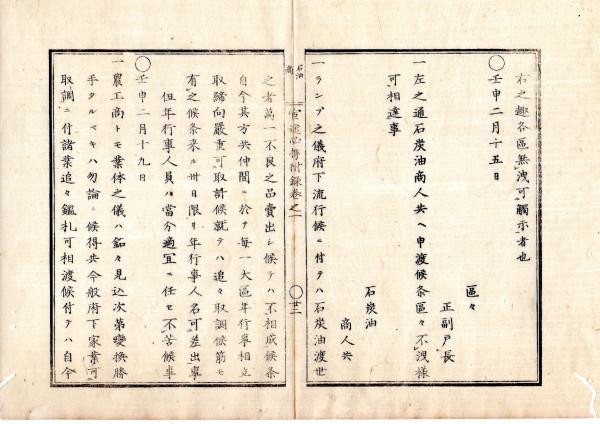 右之趣各區無洩可觸示者也
〇壬申二月十五日
區々
正副戸長
一左之通石炭油商人共ヘ申渡候条區々不洩様
可相達事
石炭油
商人共
一ランプ之儀府下流行候ニ付テハ石炭油渡世
石油商
官途必携附録巻之一
〇廿二
之者萬一不良之品賣出シ候テハ不相成候条
自今其方共仲間ニ於テ毎一大區年行事相立
取締向嚴重可取計候就テハ追々取調候筋モ
有之候条来ル廿日限リ年行事人名可差出事
但年行事人員ハ當分適宜ニ任セ不苦候事
〇壬申二月十九日
一農工商トモ業体之儀ハ銘々見込次第變換勝
手タルベキハ勿論ニ候得共今般府下家業可
取調ニ付諸業追々鑑札可相渡候付テハ自今